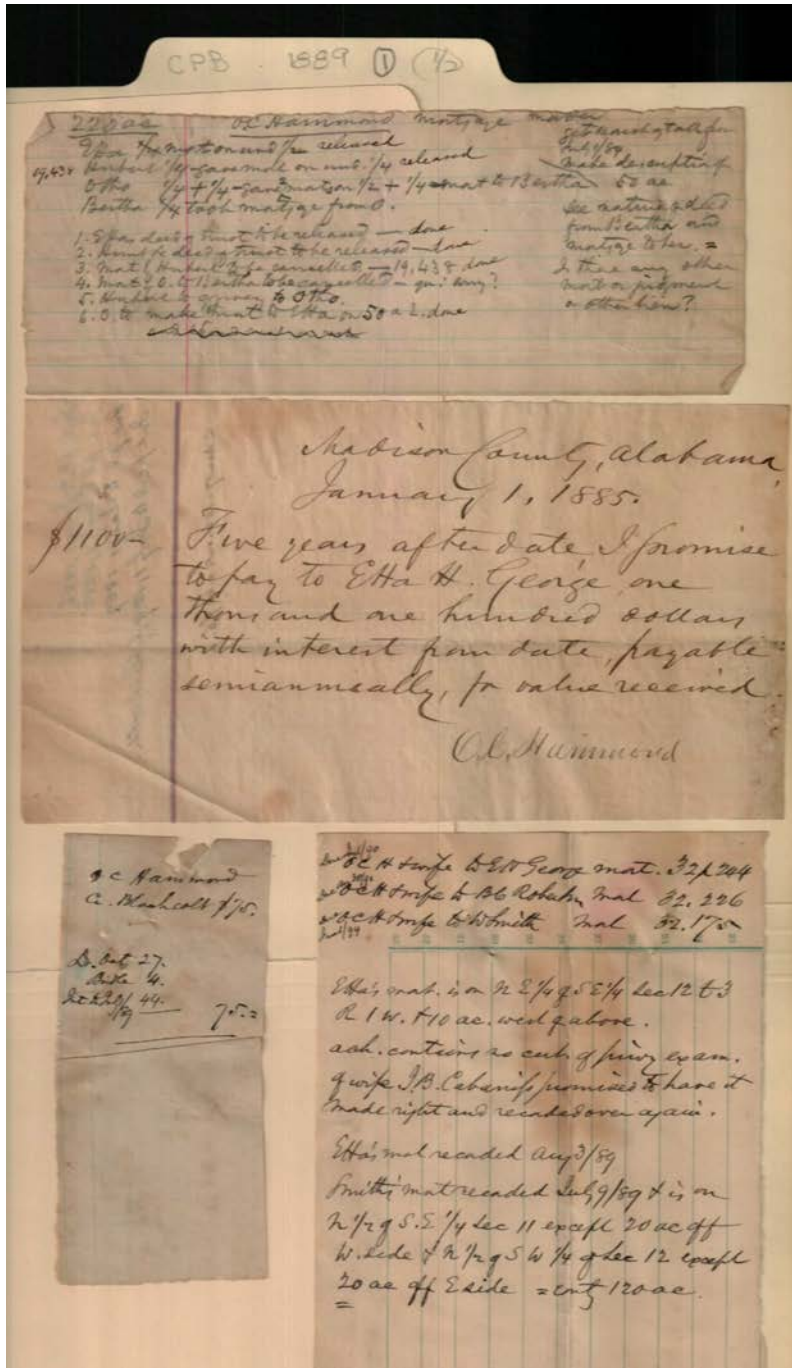 CPB 1889 ① (1/2)
220 ac O.C. Hammond mortgage
Etta mort on und 1/2 released
19,438 Hubert 1/4 gave mort on und. 1/4 released
Otho 1/4 + 1/4 gave mort on 1/2 + 1/4 mort to Bertha 50 ac
Bertha 1/4 took mortgage from O.
1. Ettas deed of trust to be released — done
2. deed of trust to be released — done
3. Mort of Hubert to be cancelled — 19,438 done
4. Mort of O. to Bertha to be cancelled — qu: any?
5. Hubert to convey to Otho.
6. O. to make to Etta on 50 a 2. done
make description of
see nature of deed
from Bertha and
mortgage to her. =
Is there any other
mort or judgment
or other lien?
Madison County, Alabama,
January 1, 1885.
$1100- Five years after date, I promise
to pay to Etta H. George one
thousand one hundred dollars
with interest from date, payable
semiannually, for value received.
O.C. Hammond
O C Hammond
$75.
Oct 27.
4.
44.
75.=
O C H & wife to E H George mort. 32 p 204
O C H & wife to B C mort 32. 226
O C H & wife to W Smith mort 32. 175
Etta's mort. is on N E 1/4 of S E 1/4 Sec 12 T 3
R 1 W. & 10 ac. west of above.
ack. contains no cert. of privy exam.
of wife J.B. Cabaniss promises to have it
made right and recorded over again.
Etta's mort recorded Aug 3/89
Smith's mort recorded July 9/89 & is on
N 1/2 of S.E. 1/4 Sec 11 except 20 ac off
W. side & N 1/2 of S W 1/4 of Sec 12 except
20 ac off E side = 120 ac.